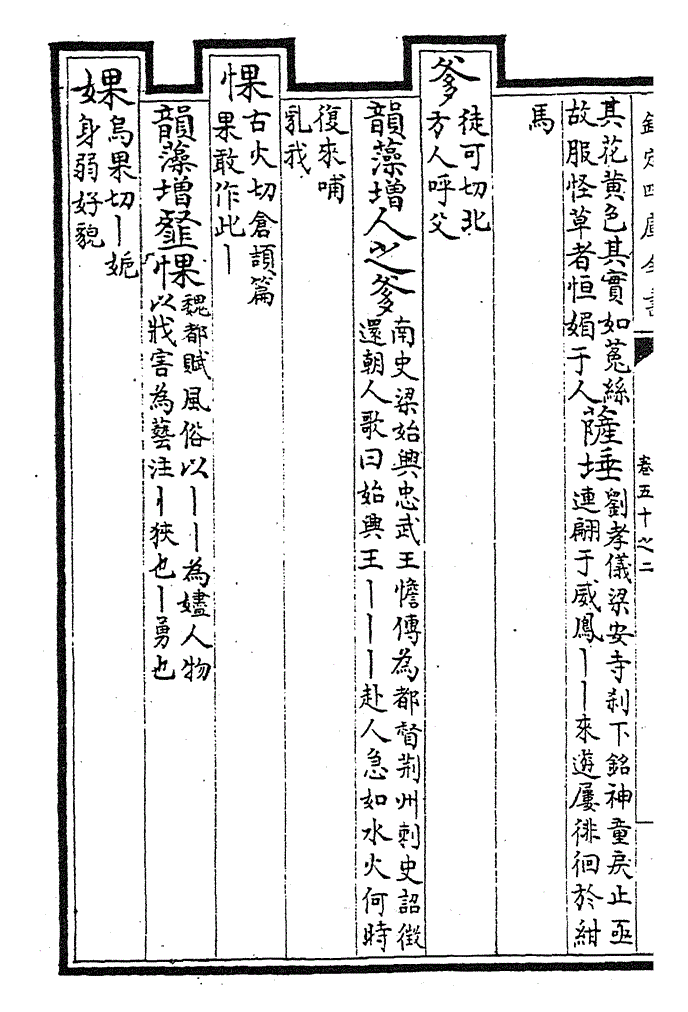 欽定四庫全書
卷五十之二
其花黄色其實如菟絲
故服怪草者恒媚于人
薩埵
劉孝儀梁安寺刹下銘神童戾止亟
連翩于威鳳丨丨來遊屢徘徊於紺
馬
爹
徒可切北
方人呼父
韻藻增
人之爹
南史梁始興忠武王憺傳為都督荆州刺史詔徴
還朝人歌曰始興王丨丨丨赴人急如水火何時
復來哺
乳我
惈
古火切倉頡篇
果敢作此丨
韻藻增
惈
魏都賦風俗以丨丨為嫿人物
以戕害為藝注丨狹也丨勇也
婐
烏果切丨婉
身弱好貌